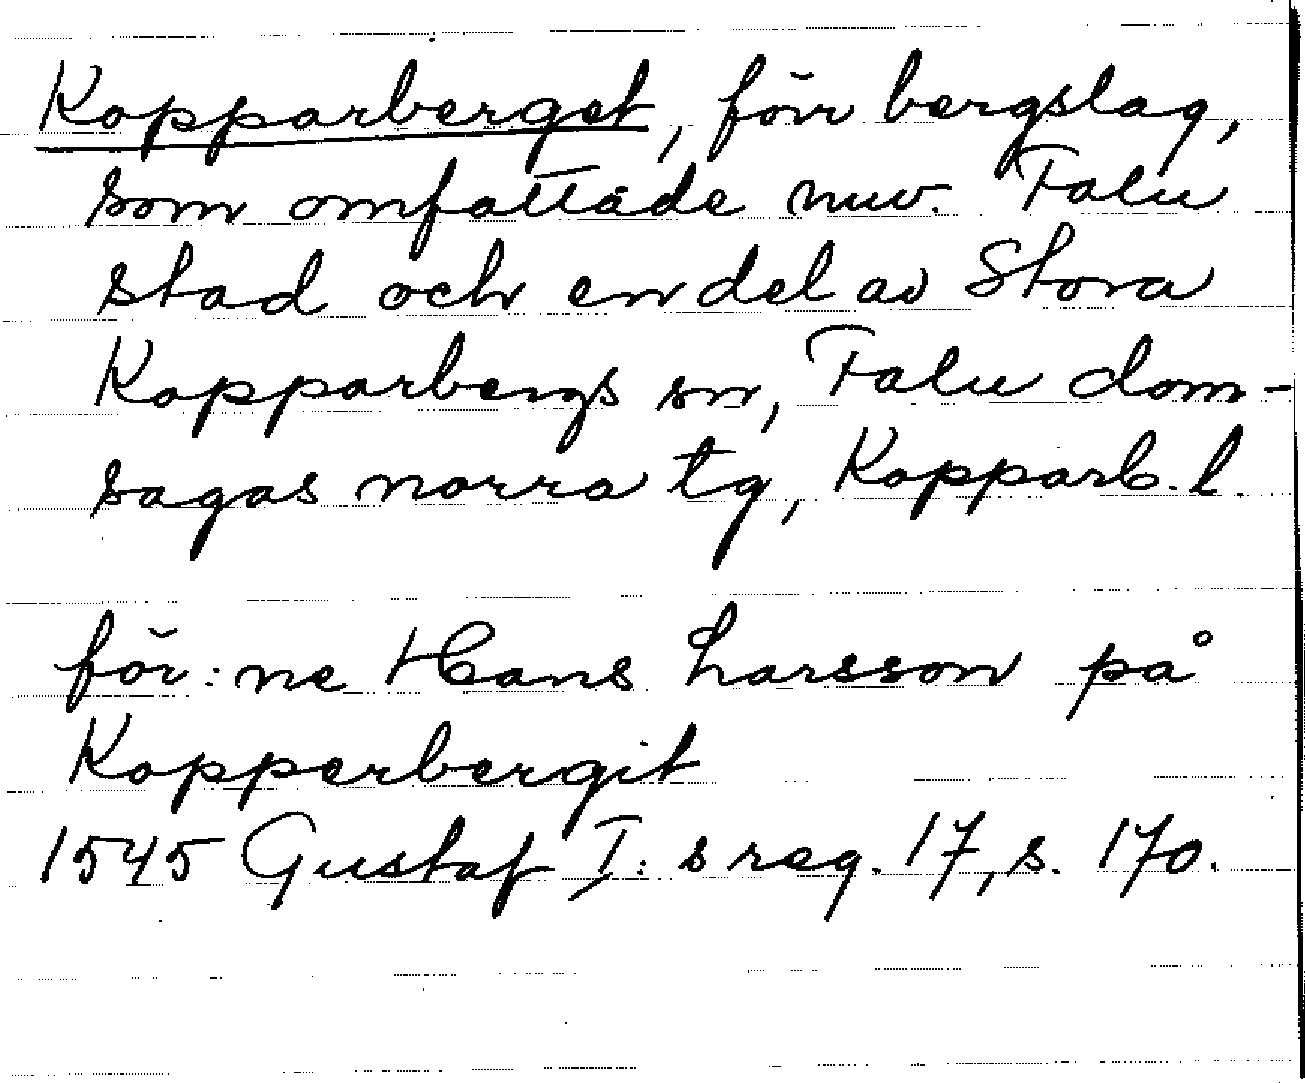 Kopparberget, förr bergslag,
som omfattade nuv. Falu
stad och en del av Stora
Kopparbergs sn, Falu dom-
sagas norra tg, Kopparb. l.
för:ne Hans Larsson på
Kopperbergit
1545 Gustaf I:s reg. 17, s. 170.